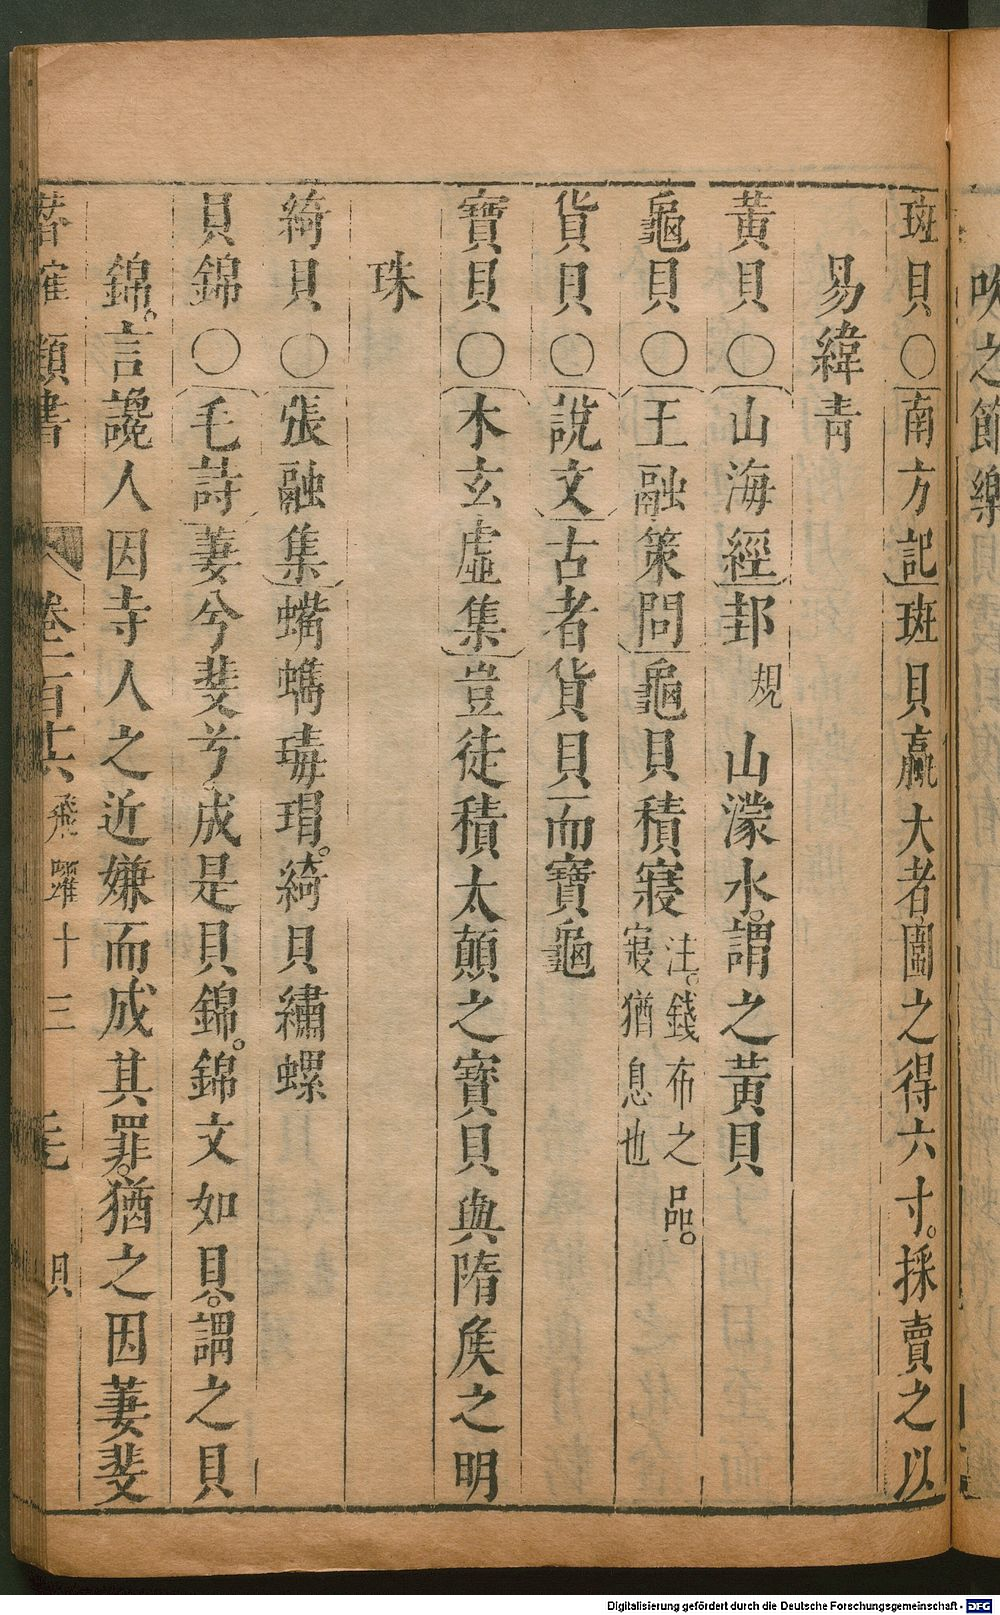 吹之節樂
斑貝〇南方記斑貝贏大者圍之得六寸。採賣之以
易緯青
黃貝〇山海經邽規山濛水。謂之黃貝
龜貝〇王融策問龜貝積寢注。錢布之品。寢猶息也
貨貝〇說文古者貨貝而寶龜
寶貝〇木玄虛集豈徒積太顛之寶貝與隋矦之明
珠
綺貝〇張融集蠵蟕瑇瑁。綺貝繡螺
貝錦〇毛詩萋兮斐兮成是貝錦。錦文如貝。謂之貝
錦。言讒人因寺人之近嫌而成其罪。猶之因萋斐
潛確類書 卷一百十六 飛躍十三 貝
Digitalisierung gefördert durch die Deutsche Forschungsgemeinschaft - DFG